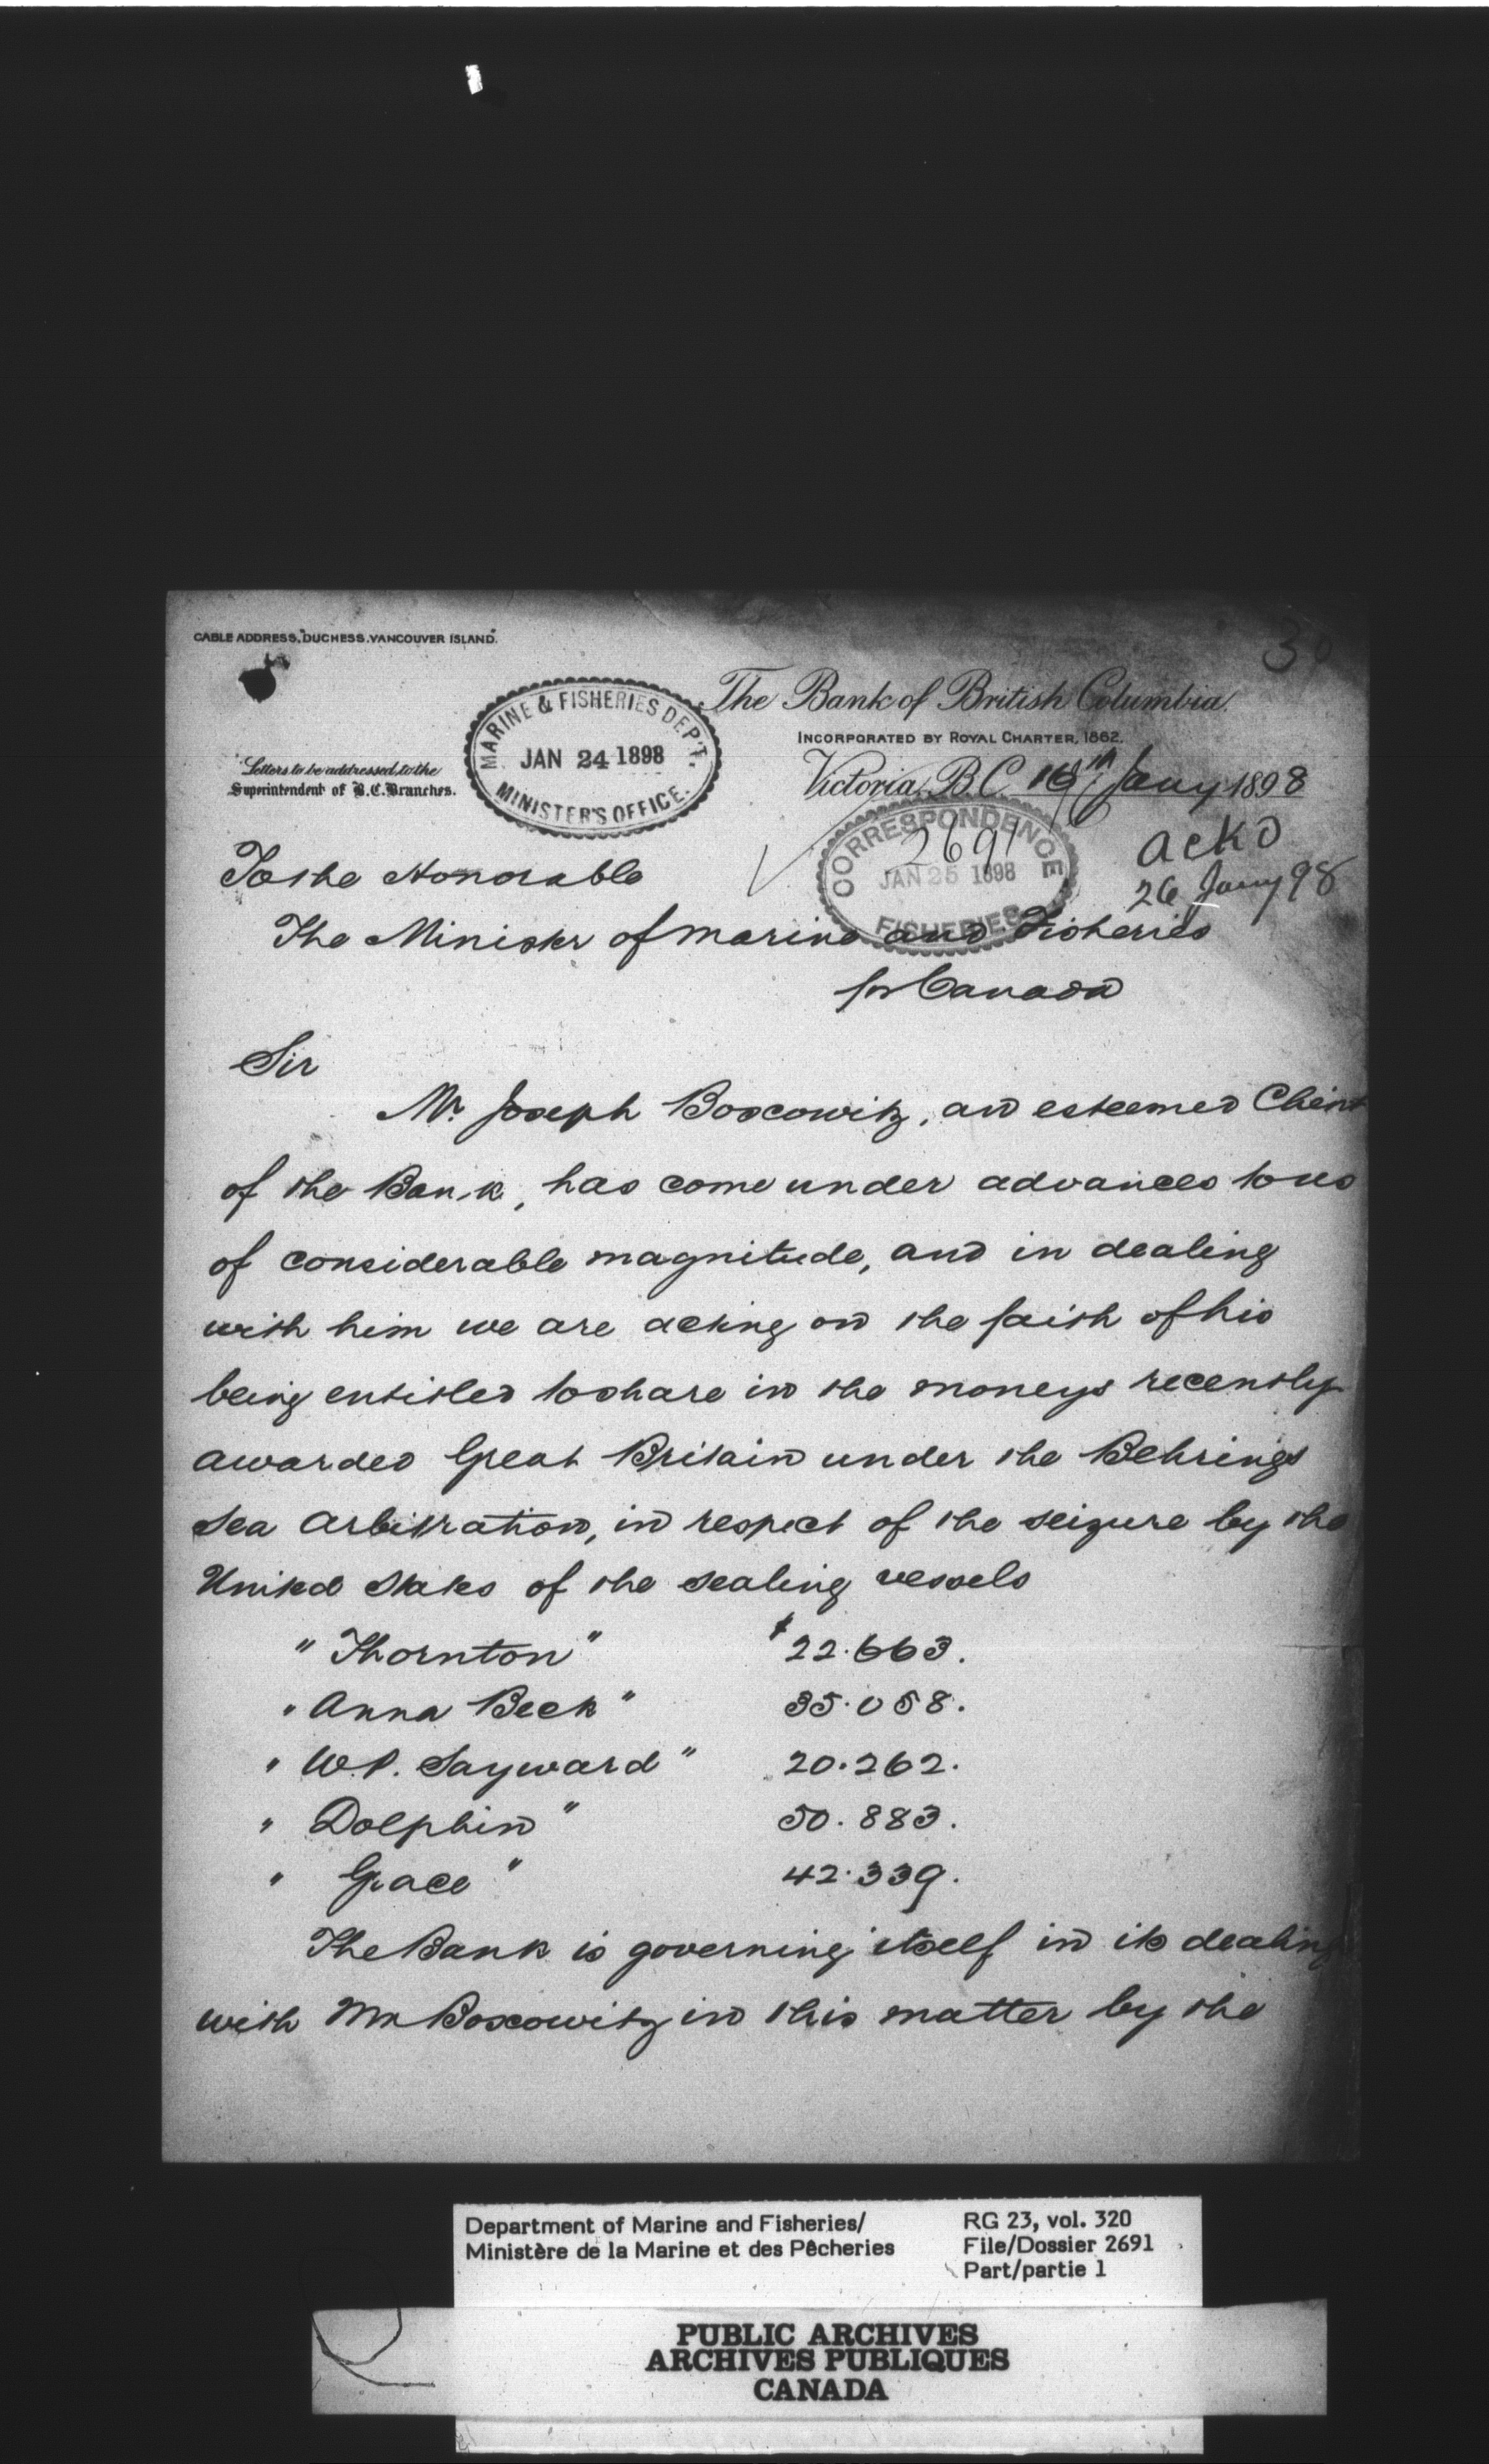 CABLE ADDRESS, "DUCHESS. VANCOUVER ISLAND."
30
The Bank of British Columbia.
INCORPORATED BY ROYAL CHARTER, 1862.
Letters to be addressed to the
Superintendent of B.C. Branches.
MARINE & FISHERIES DEP'T.
JAN 24 1898
MINISTER'S OFFICE.
Victoria, B.C. 18th Jany 1898
CORRESPONDENCE
2691
JAN 25 1898
FISHERIES
ackd
26 Jany 98
To the Honorable
The Minister of Marine and Fisheries
for Canada
Sir
Mr Joseph Boscowitz, an esteemed Client
of the Bank, has come under advances to us
of considerable magnitude, and in dealing
with him we are acting on the faith of his
being entitled to share in the moneys recently
awarded Great Britain under the Behrings
Sea Arbitration, in respect of the seizure by the
United States of the sealing vessels
"Thornton" $22.663.
"Anna Beck" 35.058.
"W.P. Sayward" 20.262.
"Dolphin" 50.883.
"Grace" 42.339.
The Bank is governing itself in its dealing
with Mr Boscowitz in this matter by the
Department of Marine and Fisheries/
Ministère de la Marine et des Pêcheries
RG 23, vol. 320
File/Dossier 2691
Part/partie 1
PUBLIC ARCHIVES
ARCHIVES PUBLIQUES
CANADA